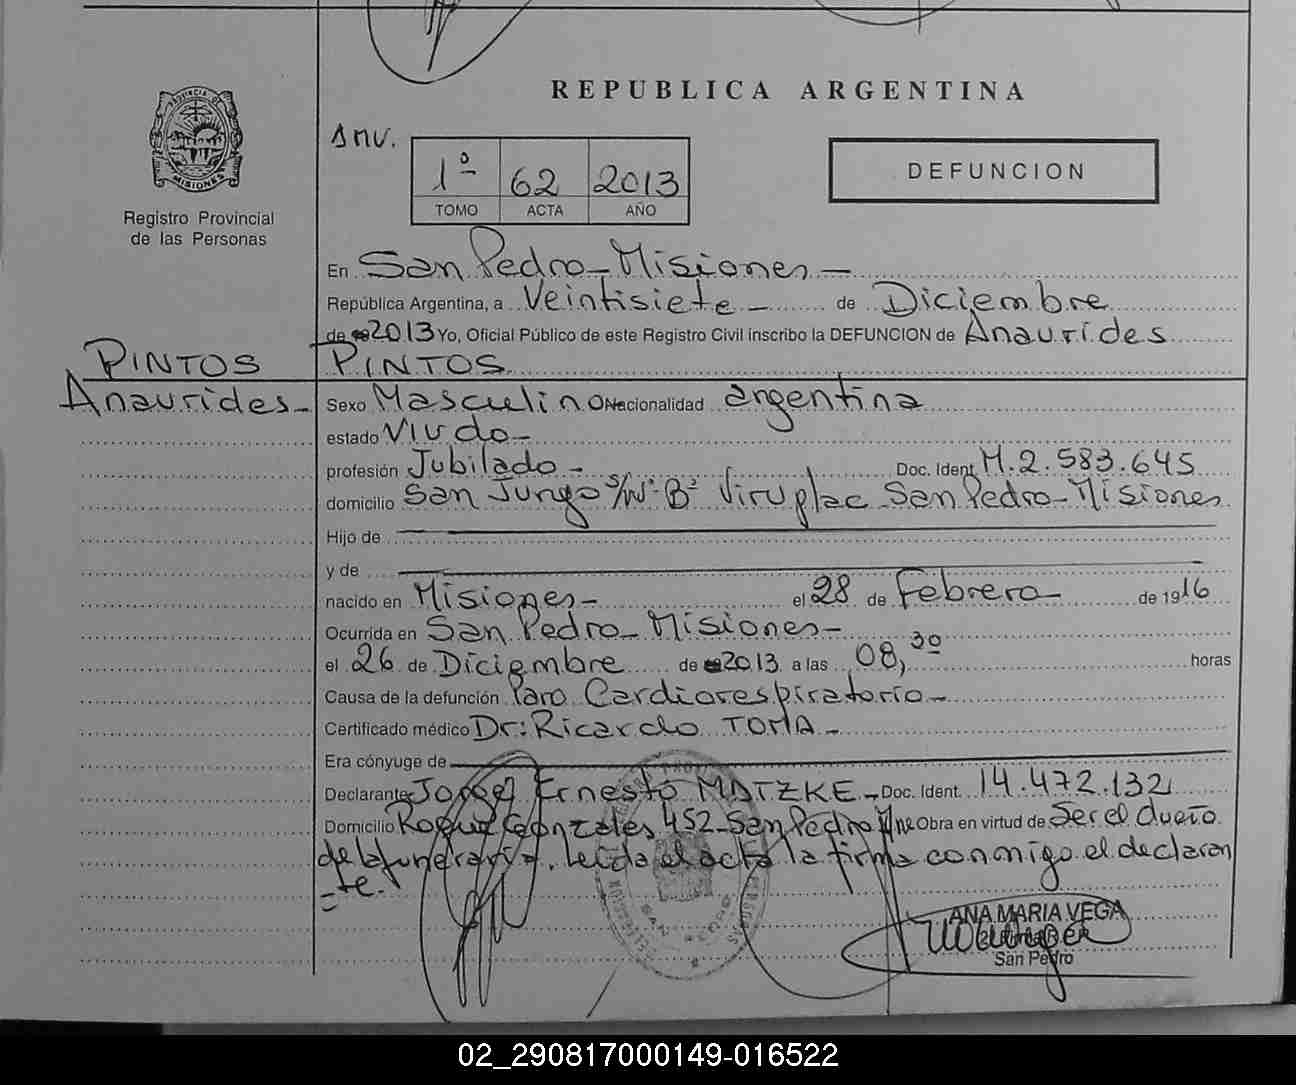 REPUBLICA ARGENTINA
PROVINCIA D
MISIONES
Registro Provincial
de las Personas
1º 62 2013
TOMO ACTA AÑO
DEFUNCION
En San Pedro - Misiones -
República Argentina, a Veintisiete - de Diciembre
de 2013 Yo, Oficial Público de este Registro Civil inscribo la DEFUNCION de Anaurides
PINTOS
PINTOS
Anaurides -
Sexo Masculino Nacionalidad argentina
estado Viudo -
profesión Jubilado - Doc. Ident. M. 2.583.645
domicilio San Jurgo s/Nº Bº Viruplac San Pedro - Misiones
Hijo de
y de
nacido en Misiones - el 28 de Febrero - de 1916
Ocurrida en San Pedro - Misiones -
el 26 de Diciembre de 2013 a las 08,30 horas
Causa de la defunción Paro Cardiorespiratorio -
Certificado médico Dr: Ricardo TOMA -
Era cónyuge de
Declarante Jorge Ernesto MATZKE - Doc. Ident. 14.472.132
Domicilio Roque Gonzales 452 - San Pedro Mnes Obra en virtud de Ser el dueño
de la funeraria. Leida el acta la firma conmigo el declaran
-te.
ANA MARIA VEGA
San Pedro
02_290817000149-016522